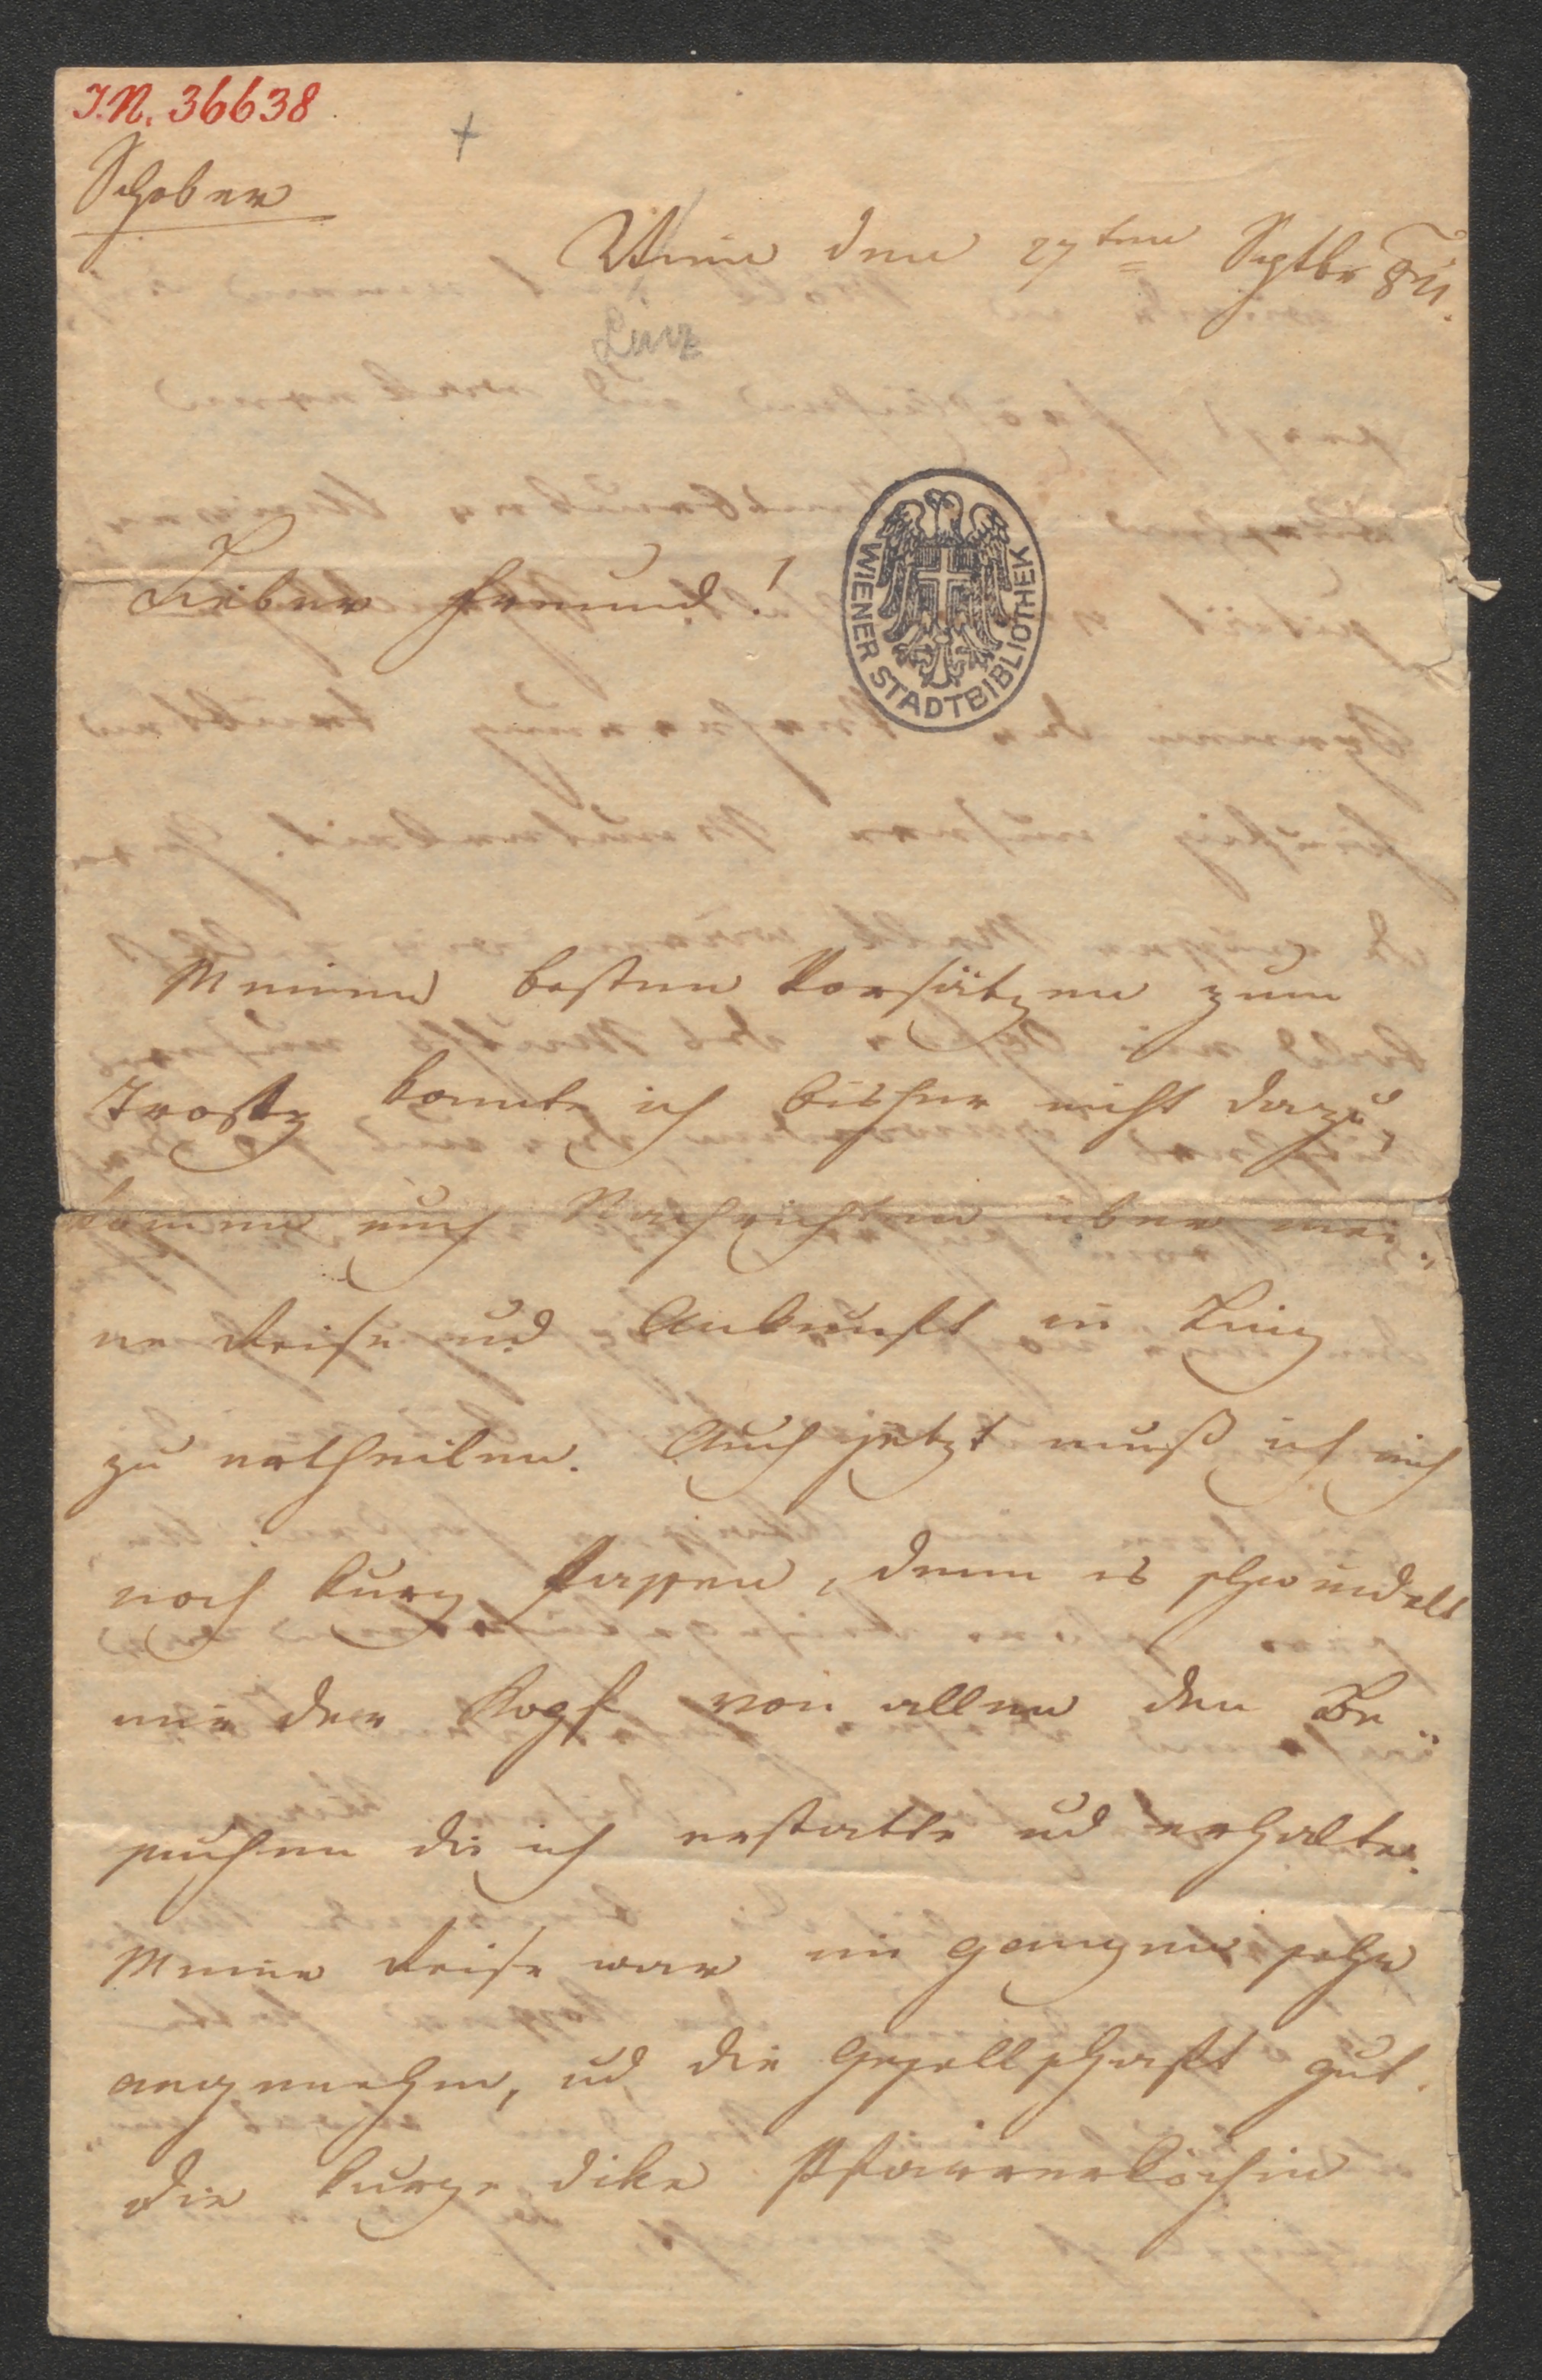 I.N. 36638
Schober
Wien den 27ten Septbr 811.
Linz
Lieber Freund!
WIENER STADTBIBLIOTHEK
Meinen besten Vorsätzen zum
Trotz konnte ich bisher nicht dazu
kommen euch Nachrichten über mei-
ne Reise und Ankunft in Linz
zu ertheilen. Auch jetzt muß ich mich
noch kurz fassen, denn es schwindelt
mir der Kopf von allen den Be-
suchen die ich erstatte und erhalte.
Meine Reise war im ganzen sehr
angenehm, und die Gesellschaft gut.
die kurze dike Pfarrerköchin